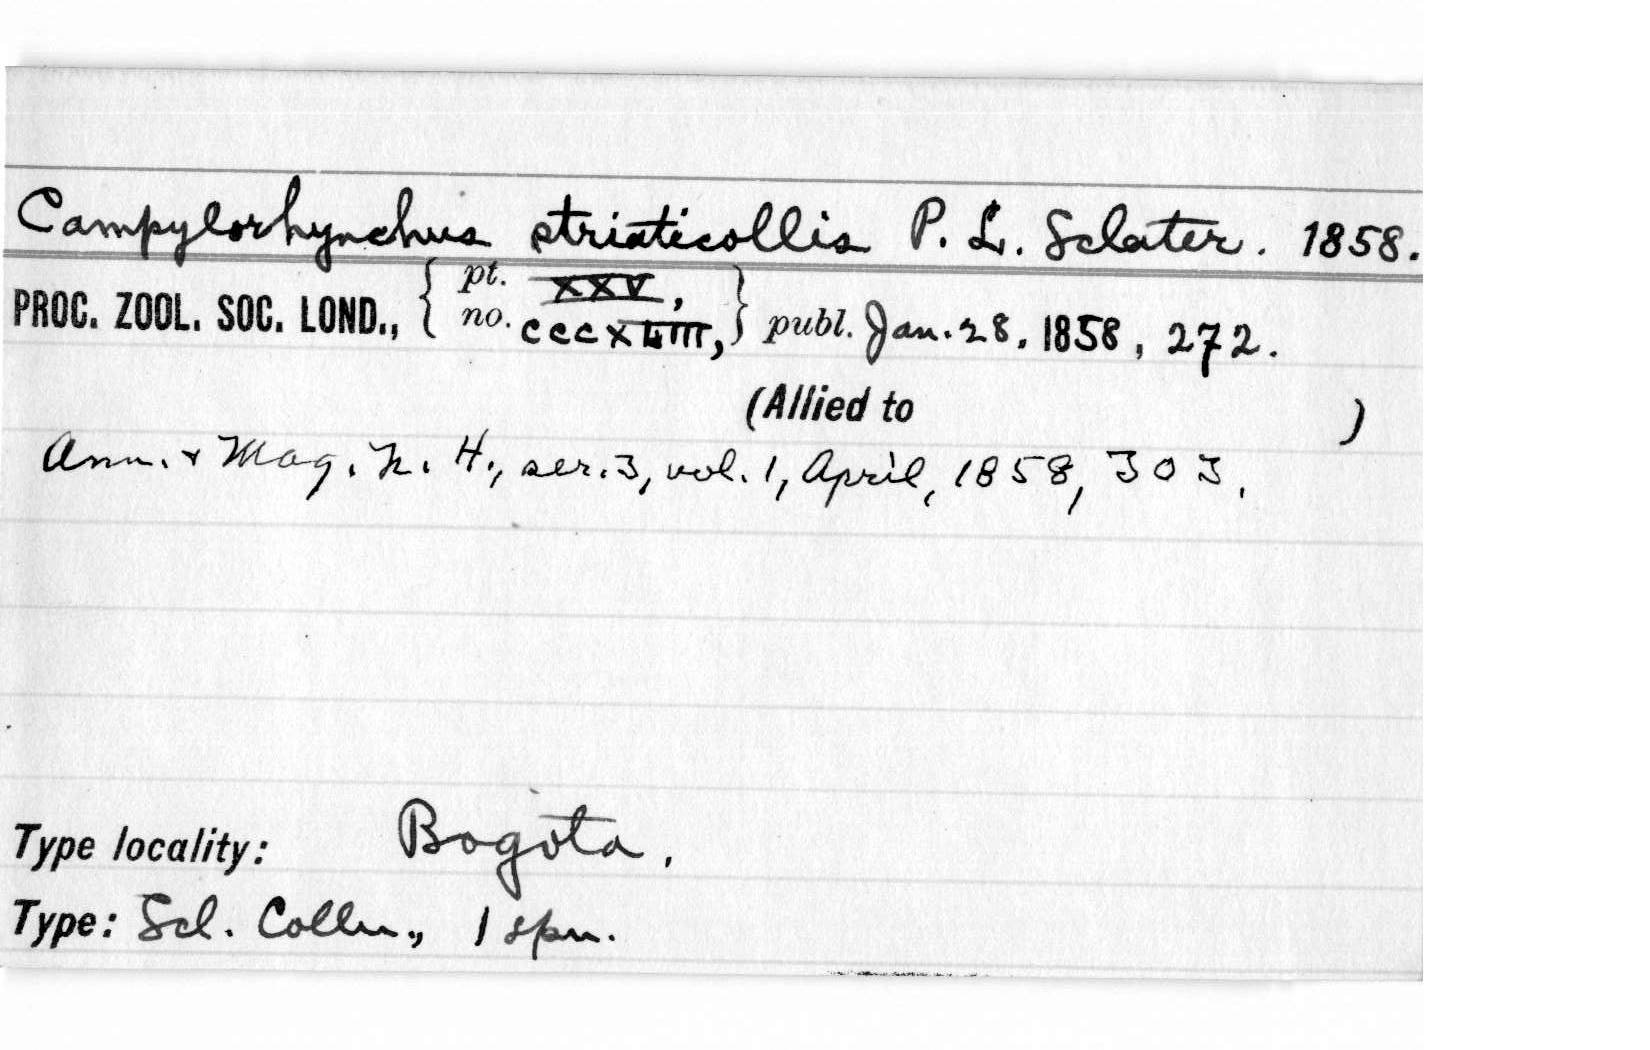 Campylorhynchus striaticollis P. L. Sclater. 1858.
PROC. ZOOL. SOC. LOND., { pt. XXV, no. CCCXLIII, } publ. Jan. 28, 1858, 272.
(Allied to )
Ann. & Mag. N. H., ser. 3, vol. 1, April, 1858, 303.
Type locality: Bogota.
Type: Scl. Colln., 1 spn.